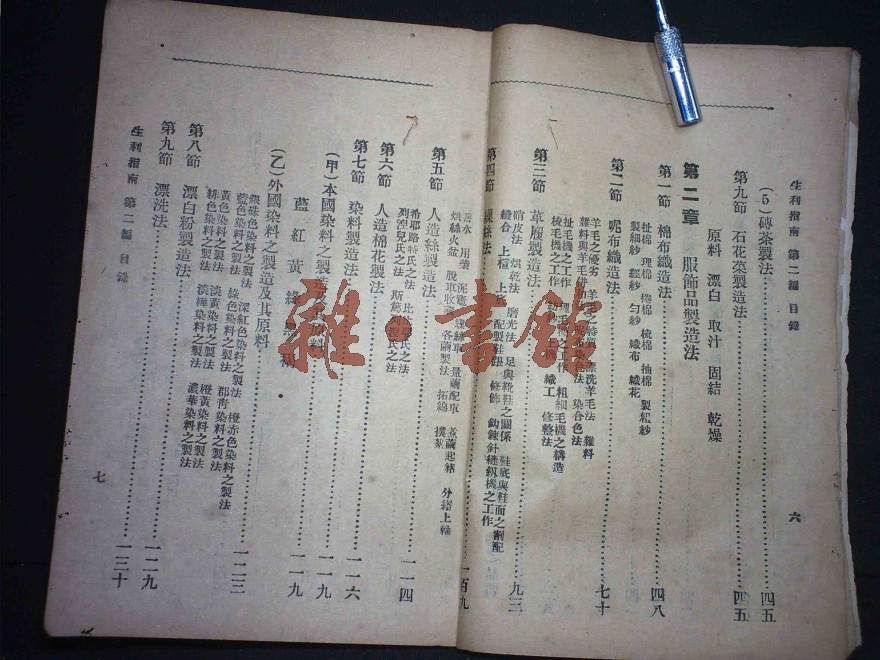 生利指南 第二編 目錄
六
(5)磚茶製法……四五
第九節 石花菜製造法……四五
原料 漂白 取汁 固結 乾燥
第二章 服飾品製造法
第一節 棉布織造法……四八
扯棉 理棉 捲棉 梳棉 抽棉 製粗紗
製細紗 經紗 勻紗 織布 織花
第二節 呢布織造法……七十
羊毛之優劣 羊毛之特質 漂洗羊毛法 雜料
雜料與羊毛 呢布染色法 染合色法
扯毛機之工作 理毛機之工作 粗細毛機之構造
梳毛機之工作 織工 修整法
第三節 草履製造法……九三
硝皮法 烘乾法 磨光法 足與靴鞋之關係 鞋底與鞋面之割配
縫合 上楦 上底 配製鞋跟 修飾 鈎鍊針縫級機之工作
第四節 繅絲法……一百九
用儀 量繭配車 煮繭起緒 分緒上軸
烘絲火盆 脫車收 各繭製法 拓綿
第五節 人造絲製造法……一一四
希耶路特氏之法 比 氏之法
列涅兒氏之法 斯篤 氏之法
第六節 人造棉花製法
第七節 染料製造法……一一六
(甲)本國染料之製造及原料……一一九
藍 紅 黃 綠 黑 褐……一一九
(乙)外國染料之製造及其原料……一二三
銀硃色染料之製法 深紅色染料之製法 橙赤色染料之製法
藍色染料之製法 綠色染料之製法 郡青染料之製法
黃色染料之製法 淡黃染料之製法 橙黃染料之製法
緋色染料之製法 淡樺染料之製法 濃華染料之製法
第八節 漂白粉製造法……一二九
第九節 漂洗法……一三十
生利指南 第二編 目錄
七
雜書館